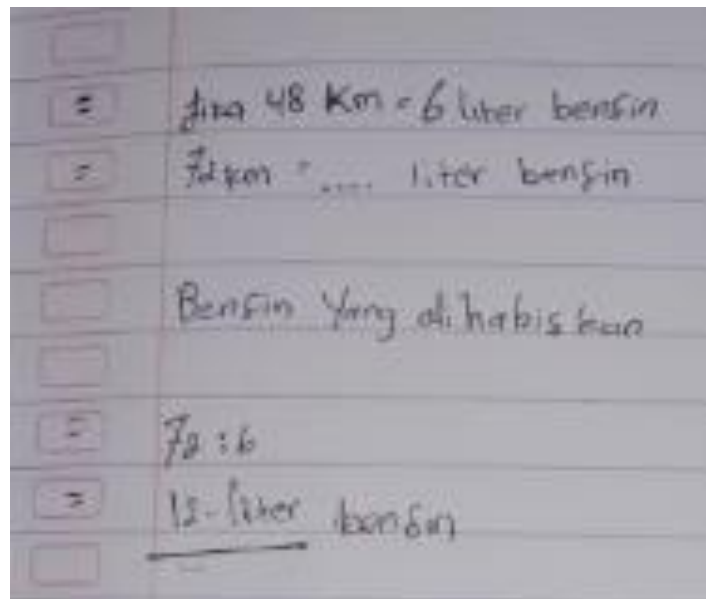 = jika 48 Km = 6 liter bensin
= 72 km = .... liter bensin
Bensin Yang dihabiskan
= 72 : 6
= 12 liter bensin